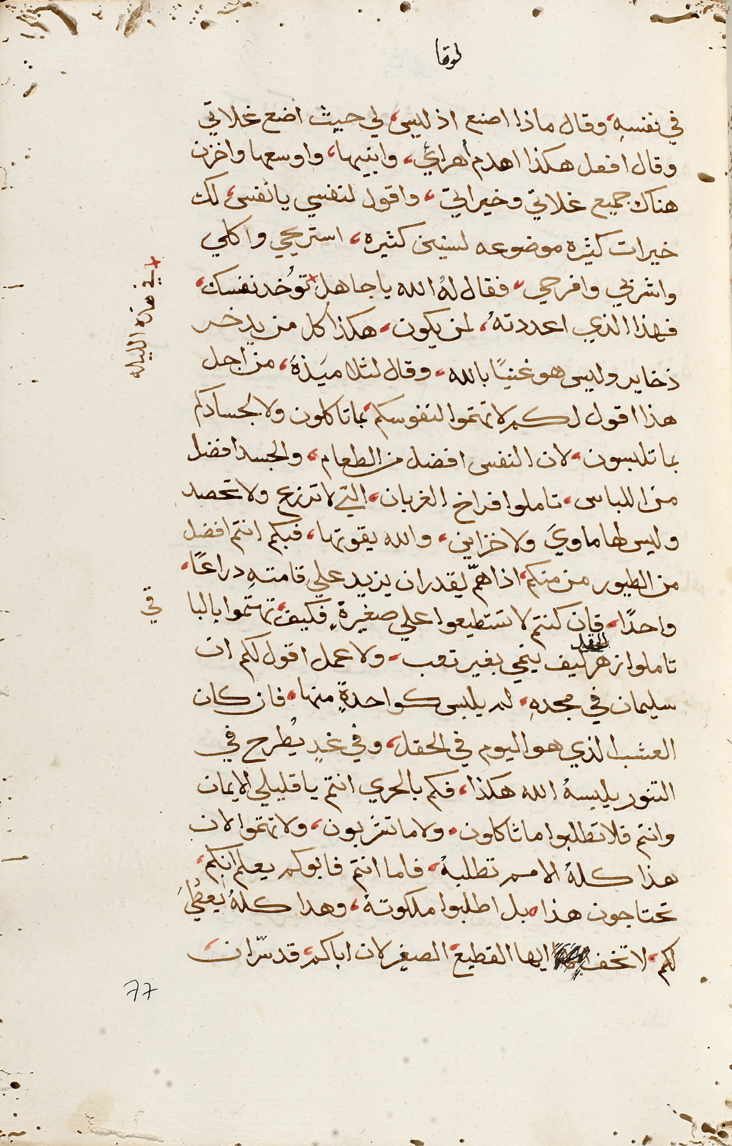 لوقا
في نفسهِ، وقال ماذا اصنع اذ ليس، لي حيث اضع غلاتي
وقال افعل هكذا اهدم اهرائي، وابنيها، واوسعها واخزن
هناك جميع غلاتي وخيراتي، واقول لنفسي يا نفس، لك
خيرات كثيره موضوعه لسنين كثيره، استريحي واكلي
واشربي وافرحي، فقال لهُ الله يا جاهل + توُخد نفسك،
+ في هذه الليله
فهذا الذي اعددتهُ، لمن يكون، هكذا كل من يدخر
ذخاير وليس هو غنيًا بالله، وقال لتلاميذهَ، من اجل
هذا اقول لكم لا تهتموا لنفوسكم بما تاكلون ولا لجسادكم
بما تلبسون، لان النفس افضل من الطعام، والجسد افضل
من اللباس، تاملوا فراخ الغربان، التي لا تزرع ولا تحصد
وليس لها ماويَ ولا خزاين، والله يقوتها، فبكم انتم افضل
من الطيور من منكم، اذا همّ يقدر ان يزيد علي قامتهِ دراعًا،
واحدًا، فان كنتم لا تستطيعوا علي صغيرةٍ، فكيف، تهتموا بالبا
قي
تاملوا زهر الحقل كيف ينمي بغير تعب، ولا عمل اقول لكم ان
سليمان في مجدهِ، لم يلبس كواحدةٍ منها، فان كان
العشب الذي هو اليوم في الحقل، وفي غدٍ يُطرح في
التنور يلبسهُ الله هكذا، فكم بالحري انتم يا قليلي الايمان
وانتم فلا تطلبوا ما تاكلون، ولا ما تشربون، ولا تهتموا لان
هذا كلهُ الامم تطلبهُ، فاما انتم فابوكم يعلم انكم،
تحتاجون هذا، بل اطلبوا ملكوتهَ، وهدا كلهُ يُعطَي
لكم، لا تخف ايها القطيع، الصغير لان اباكم، قد سرّ ان
77